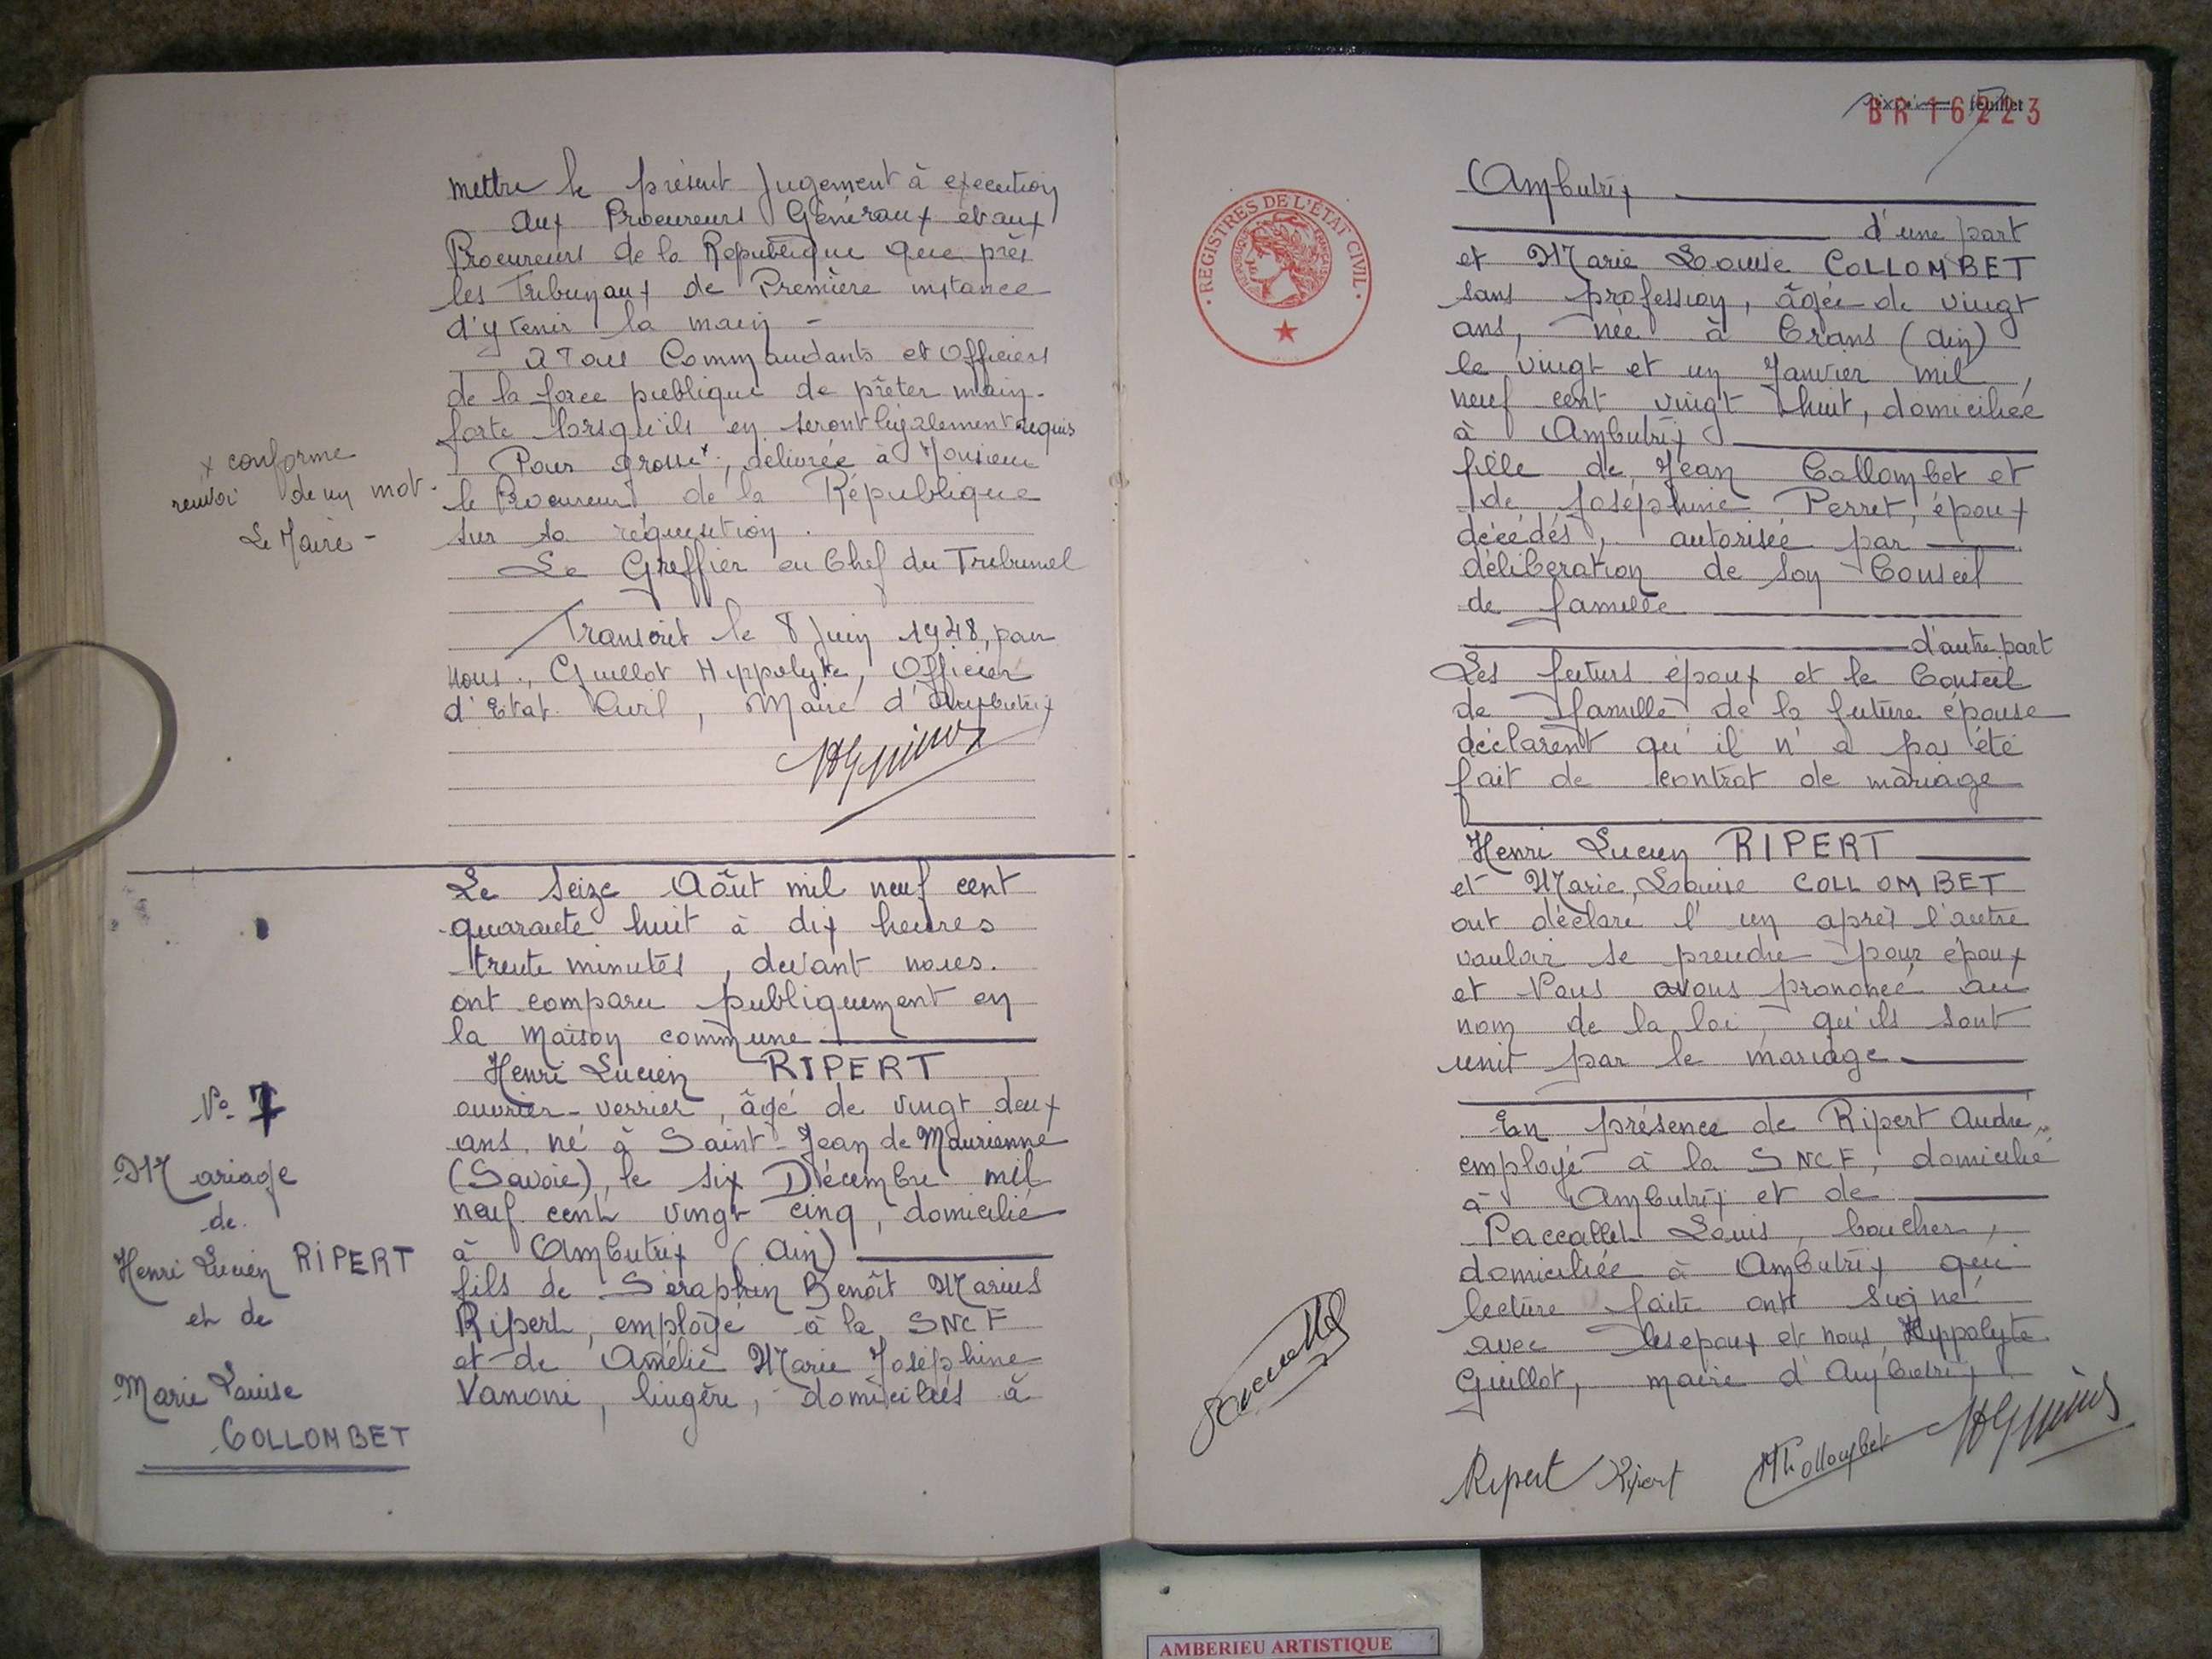 mettre le présent Jugement à execution
aux Procureurs Généraux et aux
Procureurs de la République que près
les Tribunaux de Première instance
d'y tenir la main -
A Tous Commandants et Officiers
de la force publique de prêter main-
forte lorsqu'ils en seront légalement requis
Pour grosse x, délivrée à Monsieur
le Procureur de la République
sur sa réquisition.
Le Greffier en Chef du Tribunal
Transcrit le 8 Juin 1948, par
nous, Guillot Hippolyte, Officier
d'Etat Civil, Maire d'Ambutrix
x conforme
renvoi de un mot-
Le Maire -
Le Seize Aôut mil neuf cent
quarante huit à dix heures
trente minutes, devant nous.
ont comparu publiquement en
la Maison commune
Henri Lucien RIPERT
ouvrier-verrier, âgé de vingt deux
ans né à Saint-Jean de Maurienne
(Savoie), le six Décembre mil
neuf cent vingt cinq, domicilié
à Ambutrix (Ain)
fils de Séraphin Benôit Marius
Ripert, employé à la SNCF
et de Amélie Marie Joséphine
Vanoni, lingère, domiciliés à
No 7
Mariage
de
Henri Lucien RIPERT
et de
Marie Louise
COLLOMBET
feuillet
BR 16223
Ambutrix
d'une part
et Marie Louise COLLOMBET
sans profession, âgée de vingt
ans, née à Crans (Ain)
le vingt et un Janvier mil
neuf cent vingt huit, domiciliée
à Ambutrix
fille de Jean Collombet et
de Joséphine Perret, époux
décédés, autorisée par
délibération de son Conseil
de famille
d'autre part
Les futurs époux et le Conseil
de famille de la future épouse
déclarent qu'il n'a pas été
fait de contrat de mariage
Henri Lucien RIPERT
et Marie, Louise COLLOMBET
ont déclaré l'un après l'autre
vouloir se prendre pour époux
et Nous avons prononcé au
nom de la loi, qu'ils sont
unit par le mariage
En présence de Ripert André,
employé à la SNCF, domicilié
à Ambutrix et de
Paccallet Louis, boucher,
domiciliée à Ambutrix qui
lecture faite ont signé
avec les epoux et nous, Hyppolyte
Guillot, maire d'Ambutrix
Ripert Ripert MCollombet
REGISTRES DE L'ÉTAT CIVIL
RÉPUBLIQUE FRANÇAISE
AMBERIEU ARTISTIQUE